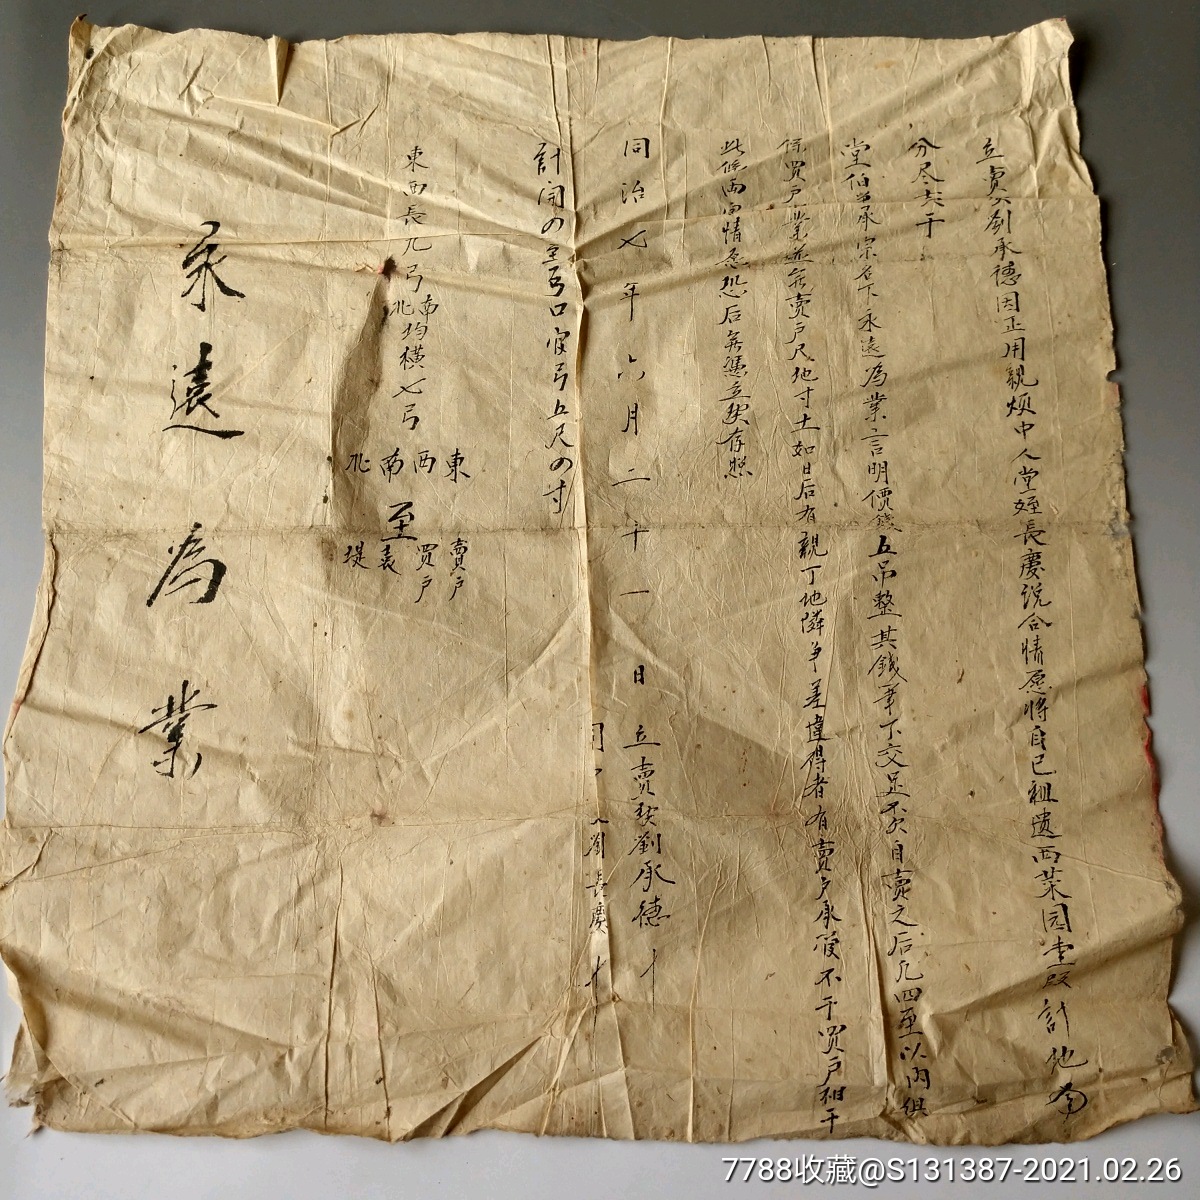 立賣契劉承德因正用親煩中人堂姪長慶説合情愿將自己祖遗西菜园壹段計地
分尽売于
堂伯 承宗名下永遠為業言明價錢五吊整其錢筆下交足不欠自賣之后凡四至以内俱
係買户業並無賣户尺地寸土如日后有親丁地隣争差違碍者有賣户承管不干買户相干
此係両由情愿恐后無憑立契存照
同治七年六月二十一日 立賣契劉承德十
同 人劉長慶十
計開の至弓口官弓五尺の寸
東西長九弓 南北均横七弓 東西南北 至 賣户 買户 袁 堤
永遠為業
7788收藏@S131387-2021.02.26